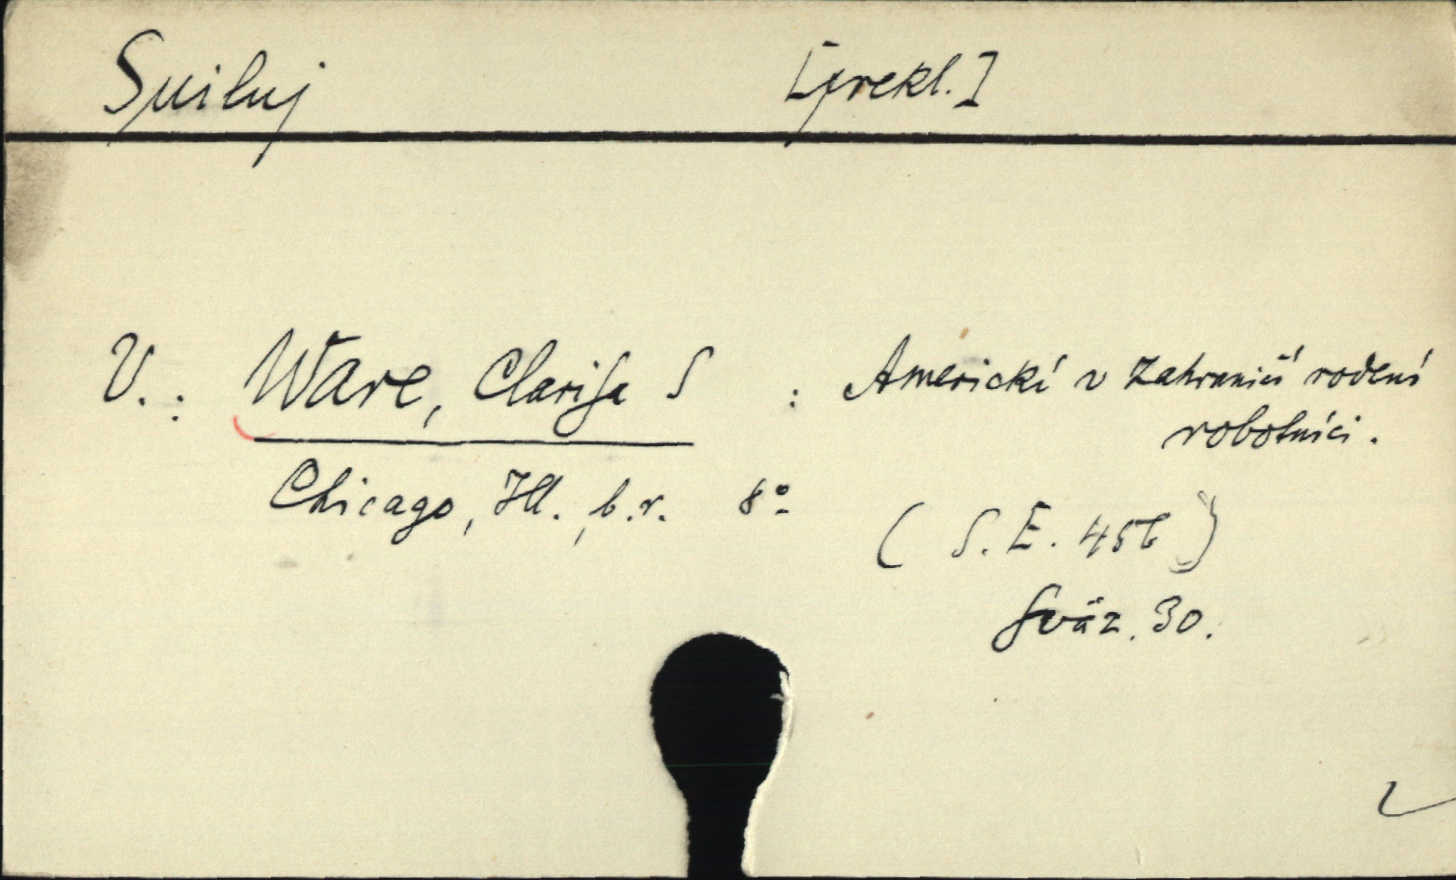 Suiluj [prekl.]
V.: Ware, Clarisa S : Americkí v zahraničí rodení
robotníci.
Chicago, Ill., b.r. 8°
( S.E. 456 )
Sväz. 30.